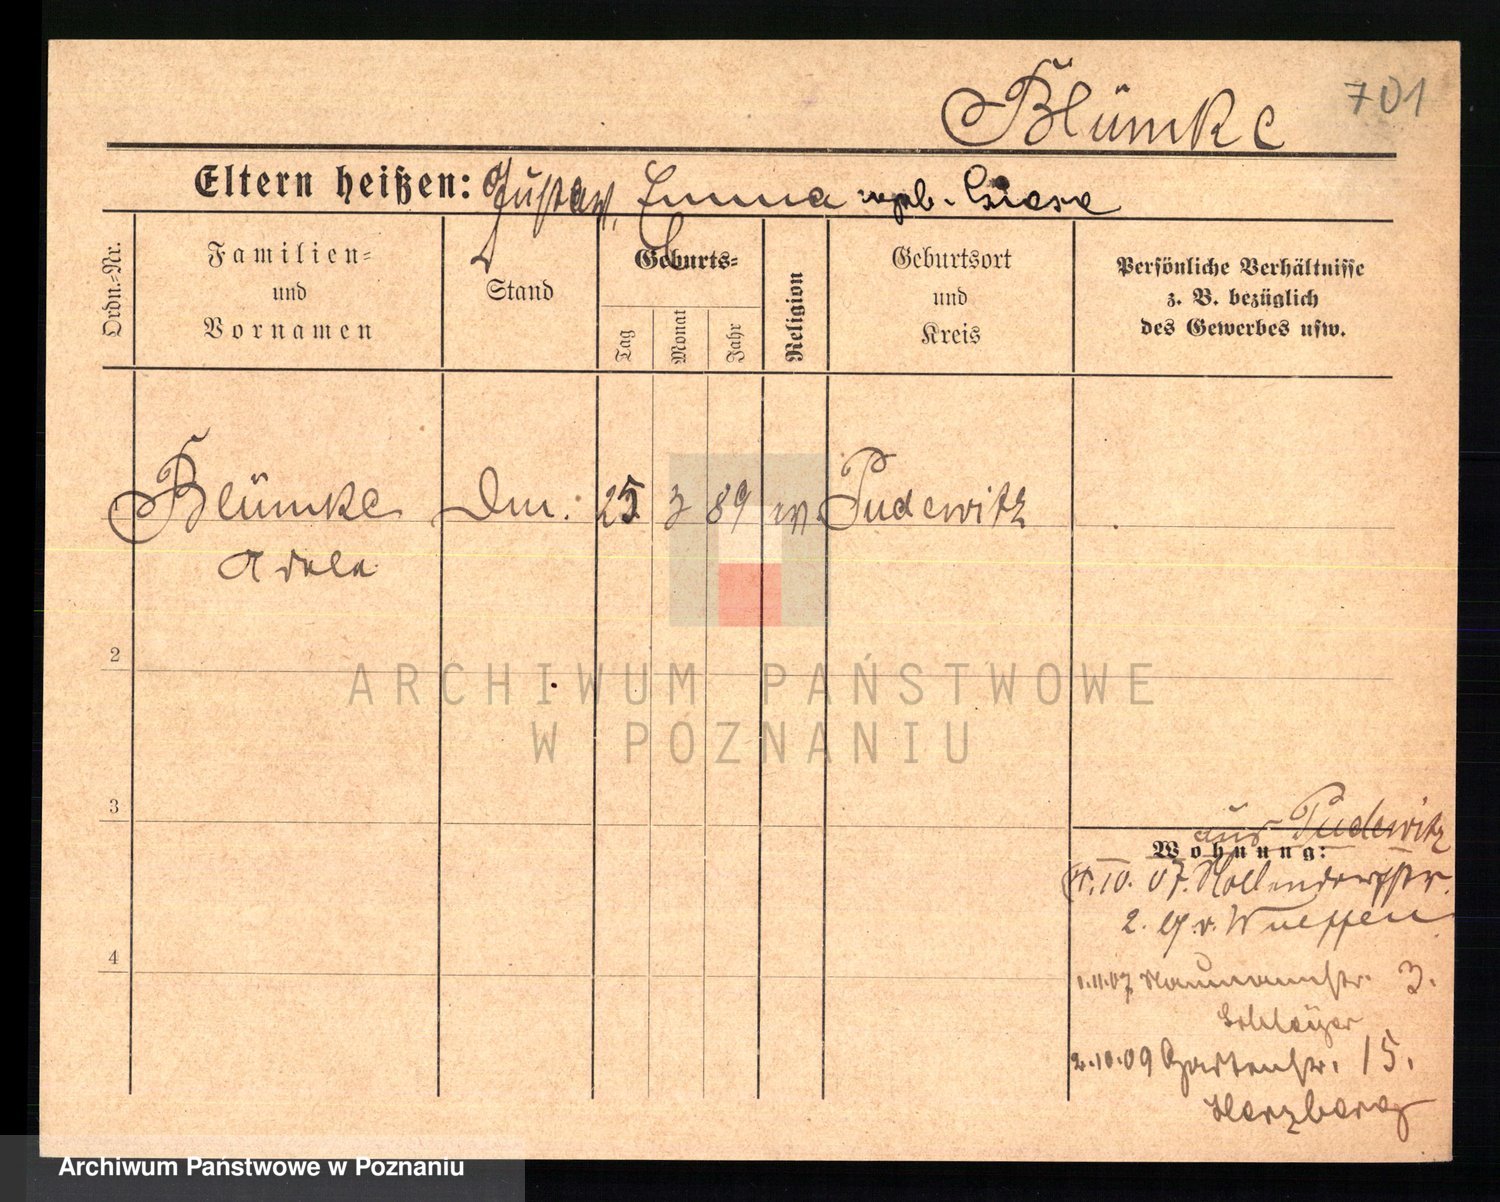 Blümke 701
Eltern heißen: Gustav, Emma geb.
Ordn.-Nr.
Familien-
und
Vornamen
Stand
Geburts-
Tag
Monat
Jahr
Religion
Geburtsort
und
Kreis
Persönliche Verhältnisse
z. B. bezüglich
des Gewerbes usw.
Blümke 25 3 89 Pudewitz
Adele
2
3
4
aus Pudewitz
Wohnung:
10. 07. Hollendorffstr.
2.
1.11.07 Naumannstr. 3.
2.10.09 Gartenstr. 15.
Herzberg
ARCHIWUM PAŃSTWOWE
W POZNANIU
Archiwum Państwowe w Poznaniu